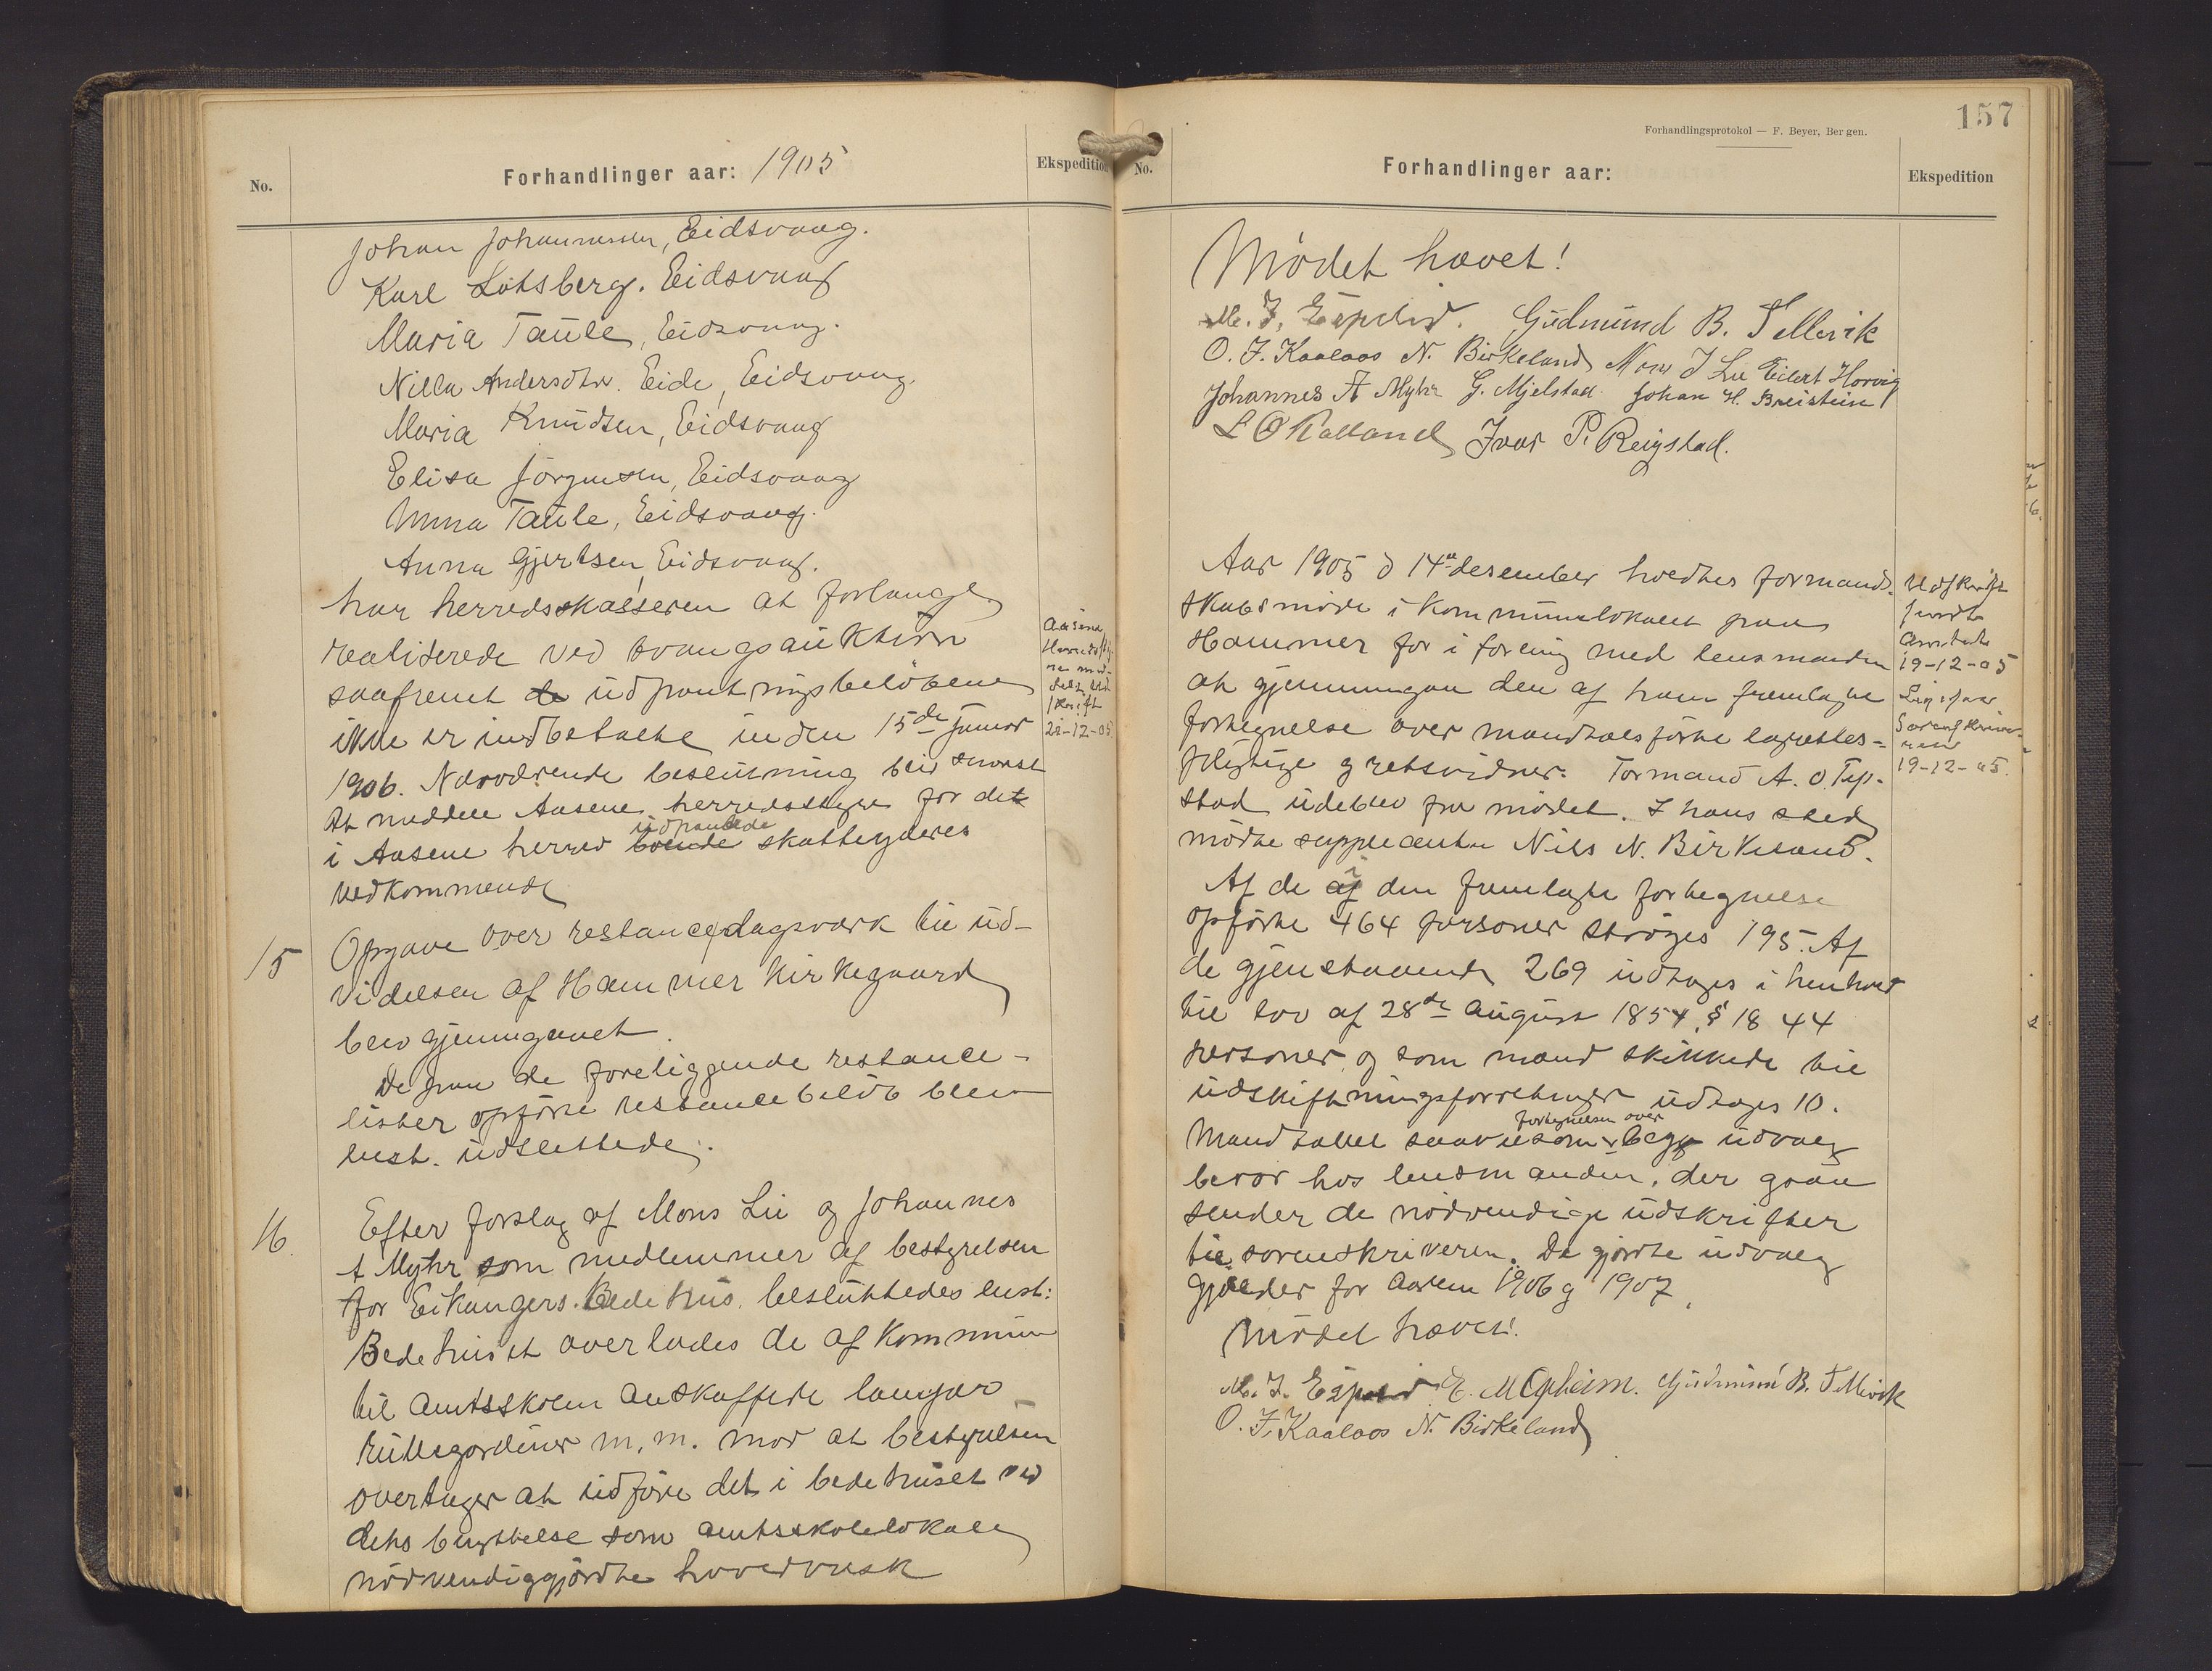 No.
Forhandlinger aar: 1905
Ekspedition
Johan Johannessen, Eidsvaag.
Karl Lotsberg. Eidsvaag
Maria Taule, Eidsvaag.
Nilla Andersdtr. Eide, Eidsvaag.
Maria Knudsen, Eidsvaag
Elisa Jörgensen, Eidsvaag
Anna Taule, Eidsvaag.
Anna Gjertsen, Eidsvaag.
har herredskasseren at forlange
realiserede ved tvangsauktion
saafremt de udpantningsbelöbene
ikke er indbetalte inden 15de januar
1906. Nærværende beslutning blir snarest
At meddele Aasene herredsstyre for det
i Aasene herred boende udpantede skatteyderes
vedkommende
Aasene
Herredssty-
re med-
delt, Ud-
skrift
21-12-05
15 Opgave over restancedagsværk til ud-
videlsen af Hammer kirkegaard
blev gjennemgaaet.
De paa de foreliggende restance-
lister opförte restancebelöb blev
enst. udslettede.
16. Efter forslag af Mons Lii og Johannes
A Myhr som medlemmer af bestyrelsen
for Eikangers Bedehus. besluttedes enst:
Bedehuset overlades de af kommunen
til amtsskolen anskaffede lamper
rullegardiner m. m. mod at bestyrelsen
overtager at udföre det i bedehuset ved
dets benyttelse som amtsskolelokale
nödvendiggjordte hovedvask
157
Forhandlingsprotokol — F. Beyer, Bergen.
No.
Forhandlinger aar:
Ekspedition
Mödet hævet!
M. J. Espelid. Gudmund B. Tellevik
O. J. Kaalaas N. Birkeland Mons J Lii Eilert Horvig
Johannes A Myhr G. Mjelstad Johan H. Breistein
L O Kalland Ivar P. Reigstad.
Aar 1905 d 14de desember holdtes formand-
skabsmöde i kommunelokalet paa
Hammer for i forening med lensmanden
at gjennemgaa den af ham fremlagte
fortegnelse over mandtalsförte lagrettes-
pligtige og retsvidner. Formand A. O. Tep-
stad udeblev fra mödet. I hans sted
mödte suppleanten Nils N. Birkeland.
Udskrift
sendt
Amtet
19-12-05
Ligesaa
Sorenskrive-
ren
19-12-05.
Af de af i den fremlagte fortegnelse
opförte 464 personer ströges 195. Af
de gjenstaaende 269 udtages i henhold
til lov af 28de august 1854, § 18 44
personer og som mænd skikkede til
udskiftningsforretninger udtages 10.
Mandtallet saavelsom fortegnelsen over begge udvalg
beror hos lensmanden, der
sender de nödvendige udskrifter
til sorenskriveren. De gjorte udvalg
gjælder for aarene 1906 og 1907.
Mödet hævet!
M. J. Espelid E. M Opheim. Gudmund B. Tellevik
O. J. Kaalaas N. Birkeland